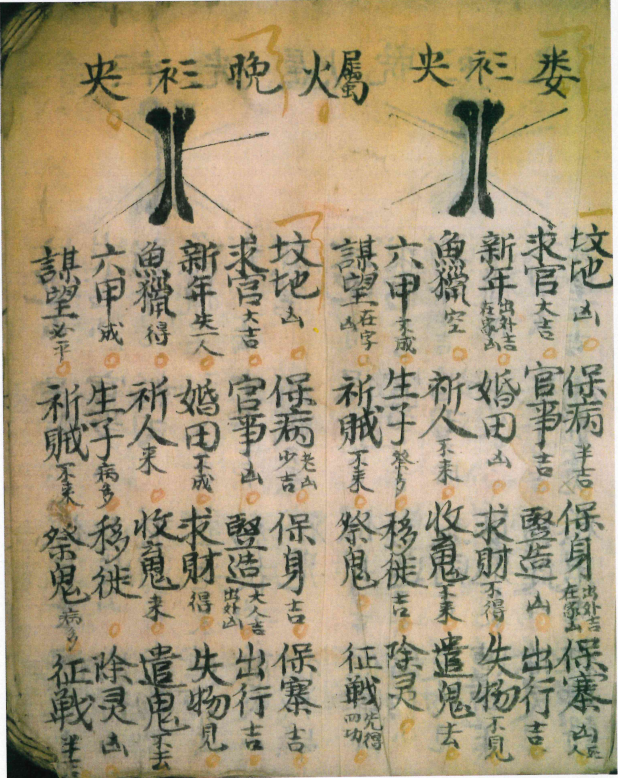 娄衫央
屬火
晚衫央
坟地凶 保病半吉 保身出外吉在家凶 保寨凶死人
求官大吉 官事吉 竪造凶 出行吉
新年出外吉在家凶 婚田凶 求财不得 失物不見
魚獵空 祈人不来 收魂不来 遣鬼去
六甲不成 生子多 移徙吉 除灵
謀望凶 祈賊不来 祭鬼 征戰先得四功
坟地凶 保病老凶少吉 保身吉 保寨吉
求官大吉 官事凶 竪造大人吉出外凶 出行吉
新年失一人 婚田不成 求财得 失物見
魚獵得 祈人来 收魂来 遣鬼不去
六甲成 生子病多 移徙 除灵凶
謀望必平 祈賊不来 祭鬼病多 征戰半